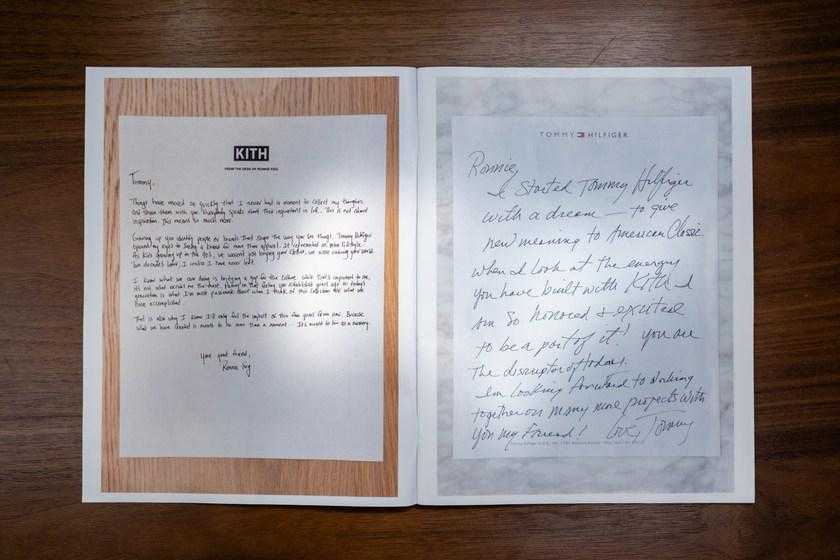 KITH
FROM THE DESK OF RONNIE FIEG
Tommy,
Things have moved so quickly that I never had a moment to collect my thoughts
and share them with you. Everybody speaks about their inspirations in life. This is not about
inspiration. This means so much more.
Growing up you identify people or brands that shape the way you see things. Tommy Hilfiger
growing up was a brand far more than apparel. It represented an entire lifestyle.
As kids growing up in the 90's, we weren't just buying your clothes, we were entering your world.
Two decades later, I realize I have never left.
I know what we are doing is bridging a gap for the culture. While that's important to me,
it's not what excites me the most. Putting in that feeling you established years ago on today's
generation is what I'm most passionate about when I think of this collection and what we
have accomplished.
That is also why I know I'll only feel the impact of this a few years from now. Because
what we have created is meant to be more than a moment. It's meant to be a memory.
Your good friend,
Ronnie Fieg
TOMMY HILFIGER
Ronnie,
I Started Tommy Hilfiger
with a dream — to give
new meaning to American Classic.
When I look at the energy
you have built with KITH I
am so honored & excited
to be a part of it! you are
the disruptor of today.
I'm looking forward to working
together on many more projects with
you my friend! Love, Tommy